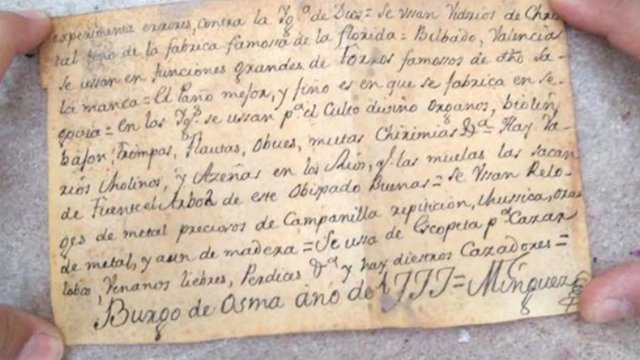 experimenta errores, contra la Yg.ª de Dios = Se Vsan Vidrios de Chris
tal fino de la fabrica famossa de la florida = Bilbado, Valencia
Se ussan en funciones grandes de Torros famosos de dho Sa-
lamanca = El Paño mejor, y fino es en que se fabrica en Se-
govia = en las Yg.ˢ se ussan p.ª el Culto divino Organos, biolin
Bajon, Trompas, Flautas, Obues, muttas Chirimias &ª = Hay Va-
rios Molinos, y Azeñas en los Rios, q.ᵉ las muelas las sacan
de Fuentelarbol de este Obispado Buenas = Se Vsan Relo-
ges de metal preciosos de Campanilla repiticion, Mussica,
de metal, y aun de madera = Se ussa de Escopeta p.ª Cazar
lobos, Venanos liebres, Perdices &ª y hay diestros Cazadores =
Burgo de Osma año de 1777 = Minguez